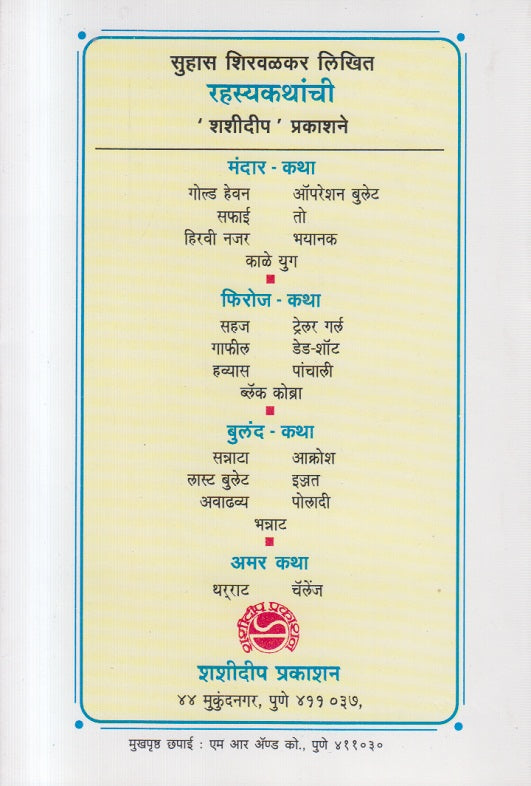 सुहास शिरवळकर लिखित
रहस्यकथांची
‘ शशीदीप ’ प्रकाशने
मंदार - कथा
गोल्ड हेवन ऑपरेशन बुलेट
सफाई तो
हिरवी नजर भयानक
काळे युग
फिरोज - कथा
सहज ट्रेलर गर्ल
गाफील डेड-शॉट
हव्यास पांचाली
ब्लॅक कोब्रा
बुलंद - कथा
सन्नाटा आक्रोश
लास्ट बुलेट इज्जत
अवाढव्य पोलादी
भन्नाट
अमर कथा
थर्‌राट चॅलेंज
शशीदीप प्रकाशन
शशीदीप प्रकाशन
४४ मुकुंदनगर, पुणे ४११ ०३७,
मुखपृष्ठ छपाई : एम आर ॲण्ड को., पुणे ४११०३०